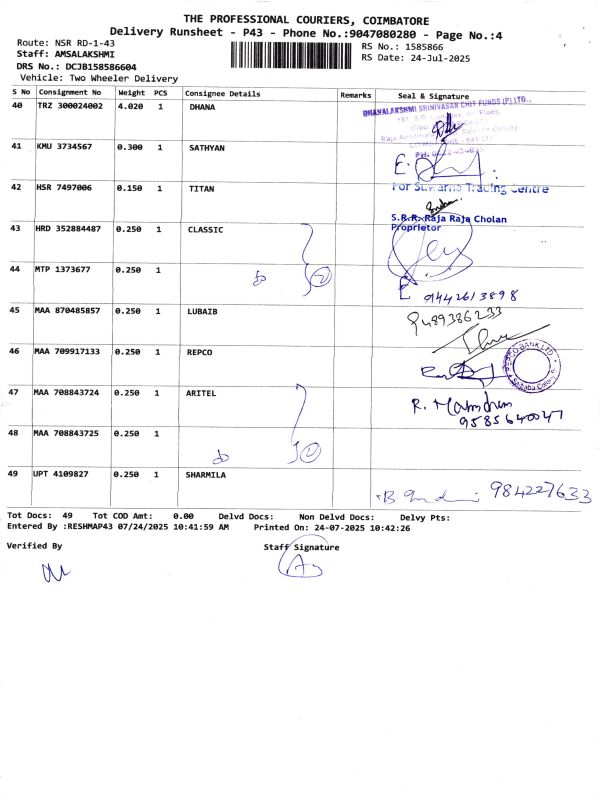 THE PROFESSIONAL COURIERS, COIMBATORE
Delivery Runsheet - P43 - Phone No.:9047080280 - Page No.:4
Route: NSR RD-1-43
Staff: AMSALAKSHMI
DRS No.: DCJB158586604
Vehicle: Two Wheeler Delivery
RS No.: 1585866
RS Date: 24-Jul-2025
S No Consignment No Weight PCS Consignee Details Remarks Seal & Signature
40 TRZ 300024002 4.020 1 DHANA
DHANALAKSHMI SRINIVASAN CHIT FUNDS (P) LTD.,
41 KMU 3734567 0.300 1 SATHYAN
42 HSR 7497006 0.150 1 TITAN
For Suvarna Trading Centre
S.R.R. Raja Raja Cholan
Proprietor
43 HRD 352884487 0.250 1 CLASSIC
44 MTP 1373677 0.250 1
2
9442613898
45 MAA 870485857 0.250 1 LUBAIB
9489386233
46 MAA 709917133 0.250 1 REPCO
REPCO BANK LTD
47 MAA 708843724 0.250 1 ARITEL
9585640047
48 MAA 708843725 0.250 1
2
49 UPT 4109827 0.250 1 SHARMILA
984227633
Tot Docs: 49 Tot COD Amt: 0.00 Delvd Docs: Non Delvd Docs: Delvy Pts:
Entered By :RESHMAP43 07/24/2025 10:41:59 AM Printed On: 24-07-2025 10:42:26
Verified By Staff Signature